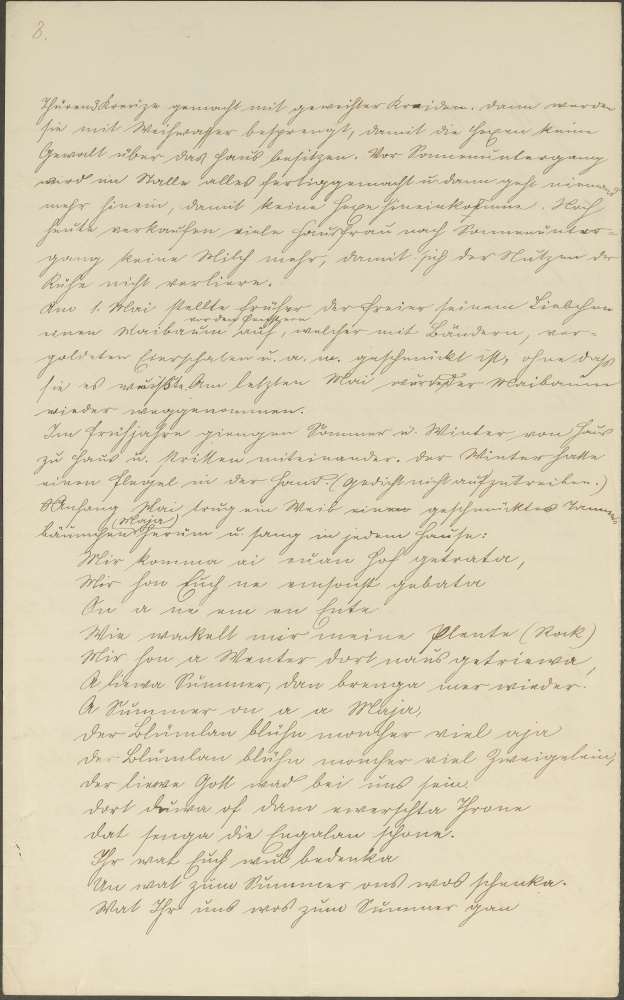 8.
Thüren 3 Kreuze gemacht mit geweihter Kreiden. Dann werden
sie mit Weihwasser besprengt, damit die Hexen keine
Gewalt über das Haus besitzen. Vor Sonnenuntergang
wird im Stalle alles fertiggemacht u. dann geht niemand
mehr hinein, damit keine Hexe hineinkomme. Noch
heute verkaufen viele Hausfrau nach Sonnenunter-
gang keine Milch mehr, damit sich der Nutzen der
Kühe nicht verliere.
Am 1. Mai stellte früher der Freier seinem Liebchen
vor den Fenstern
einen Maibaum auf, welcher mit Bändern, ver-
goldeten Eierschalen u. a. m. geschmückt ist, ohne daß
sie es wußte. Am letzten Mai wurde der Maibaum
wieder weggenommen.
Im Frühjahre giengen Sommer u. Winter von Haus
zu Haus u. stritten miteinander. Der Winter hatte
einen Flegel in der Hand. (Gedicht nicht aufzutreiben.)
Anfang Mai trug ein Weib einen geschmücktes Tannen
(Maja)
bäumchen herum u. sang in jedem Hause:
Mir komma ai euan Hof getrata,
Mir hon Euch ne einsonst gebata
On a ne em en Ente
Wie wackelt mir meine Plente (Rock)
Mir hon a Wenter dort naus getriewa,
A liewa Summer, dan brenga mer wieder.
A Summer on a a Maja,
Der Blümlan blühn moncher viel aja
Der Blümlan blühn moncher viel Zweigelein,
Der liewe Gott wad bei uns sein.
Dort duwa of dam ewerschta Throne
Dat senga die Engalan schone.
Ihr wat Euch wull bedenka
Un wat zum Summer ons wos schenka.
Wat Ihr uns wos zum Summer gan